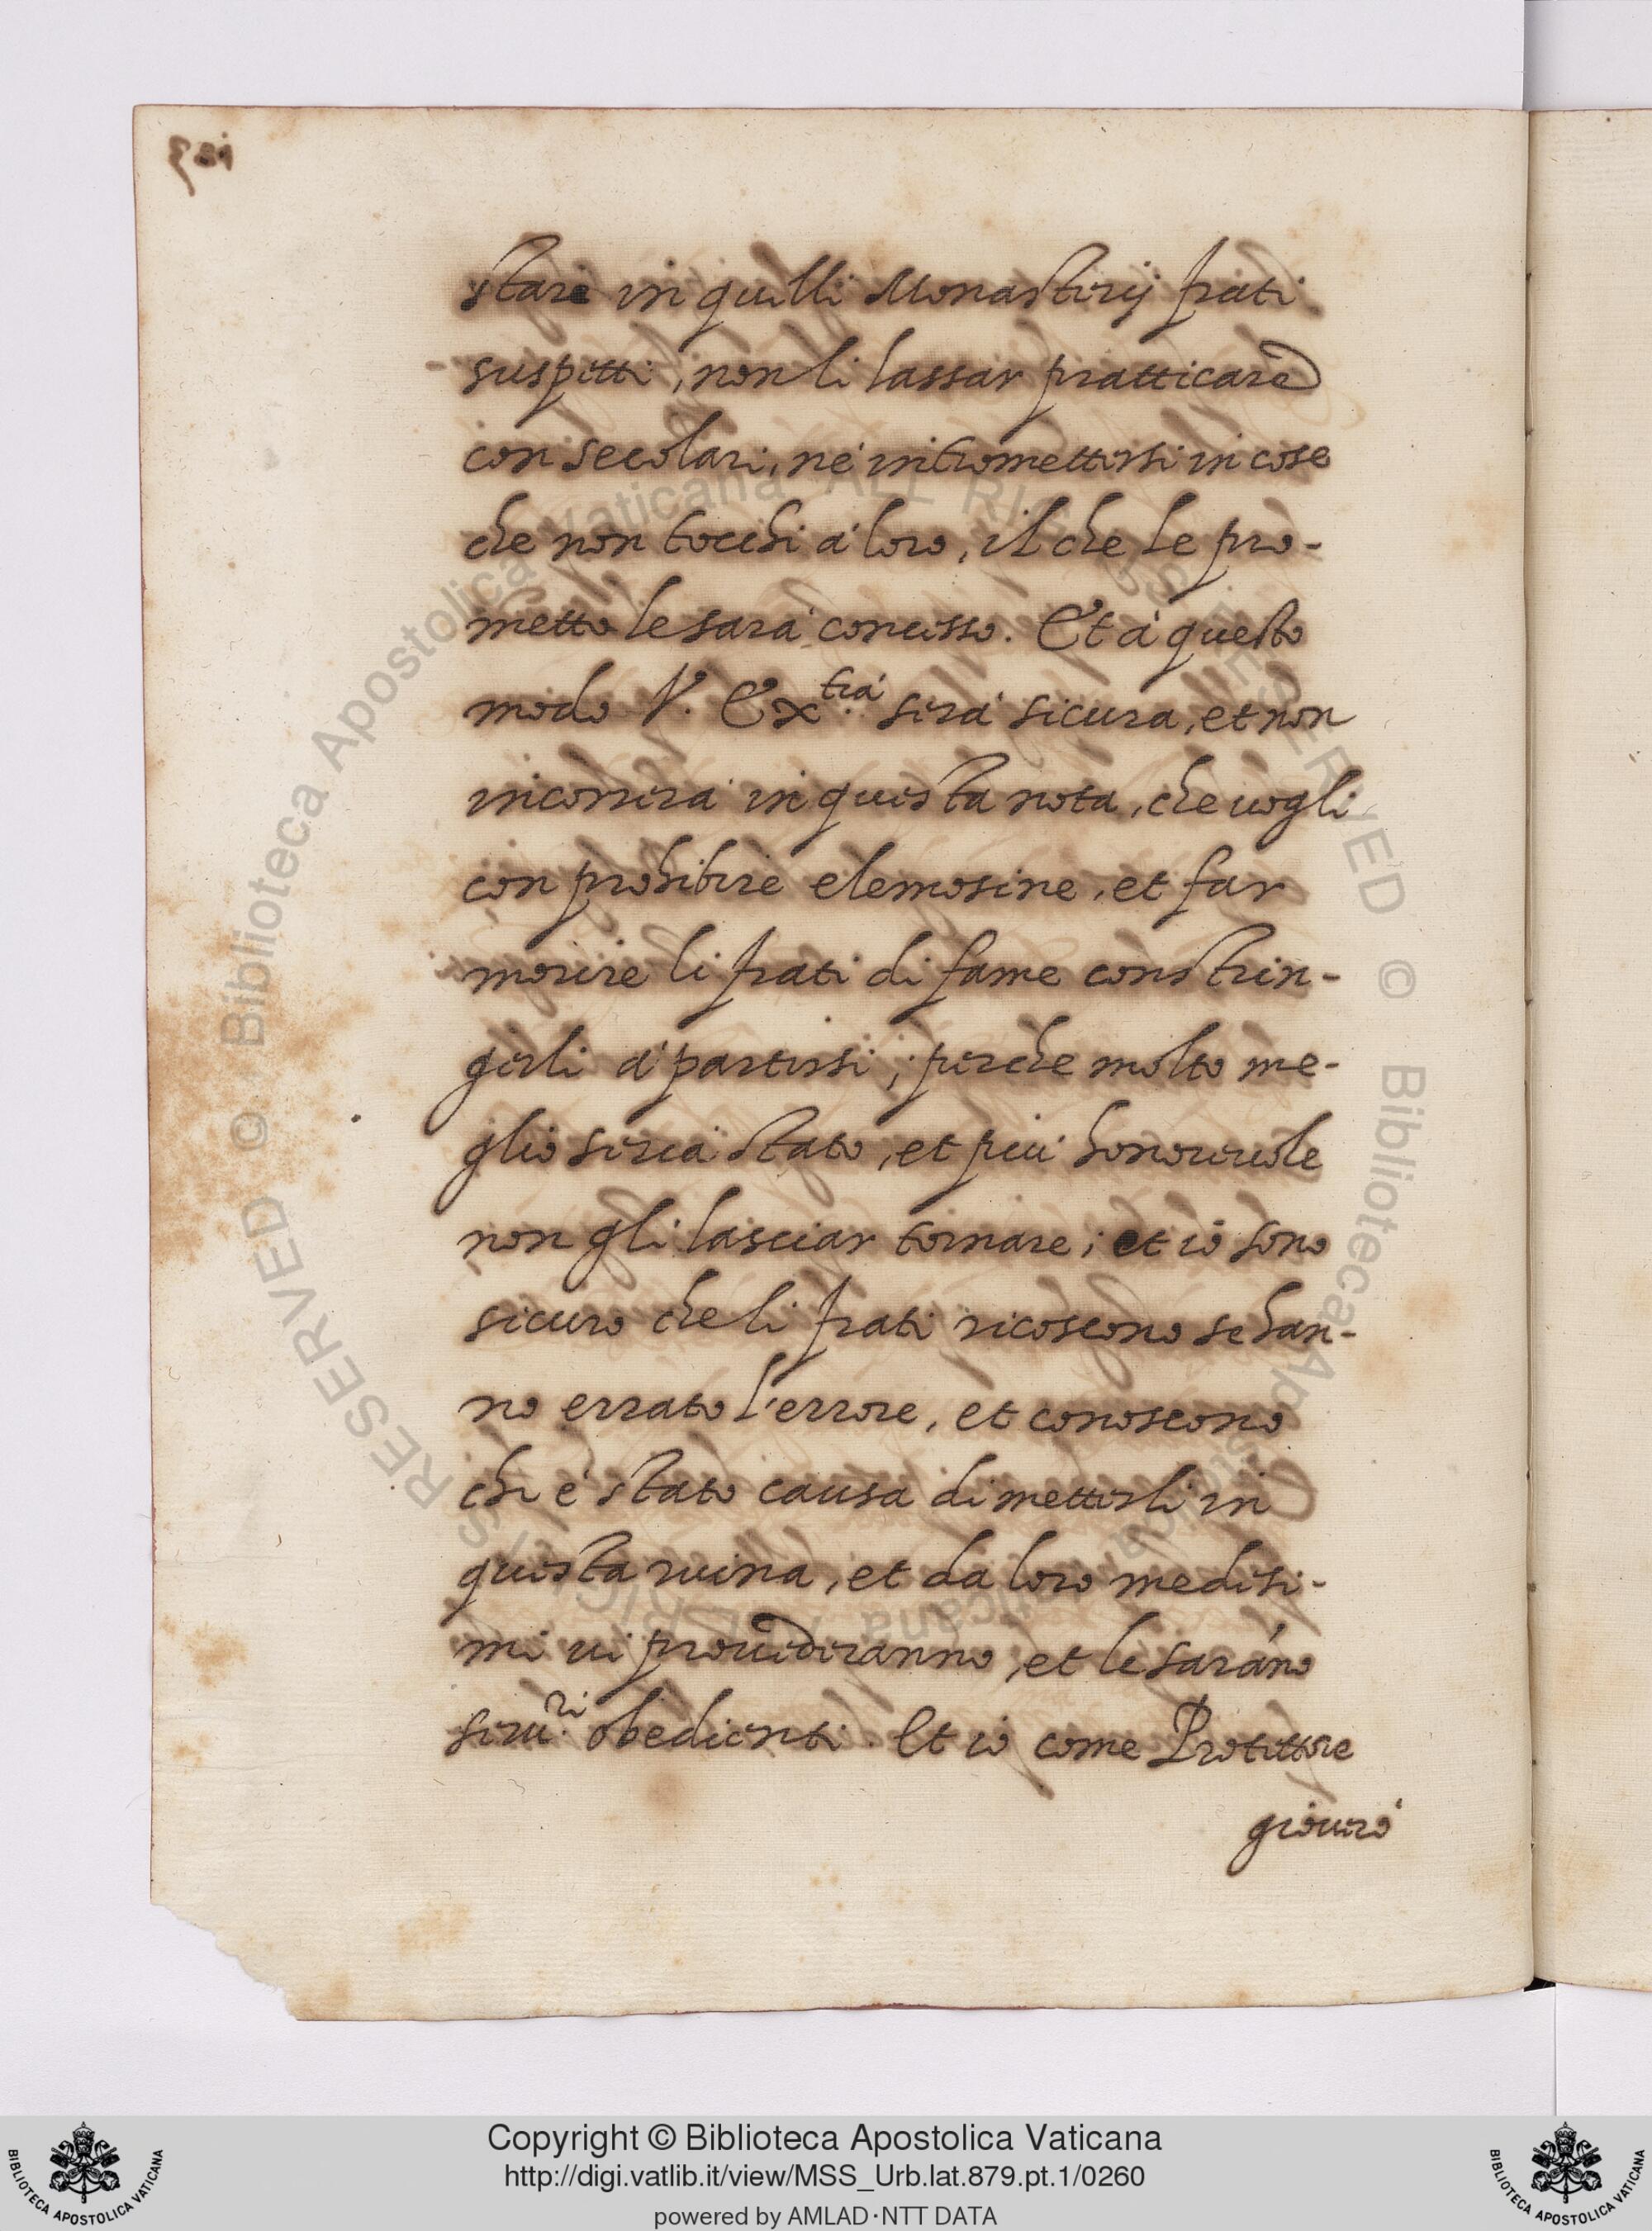 stare in quelli Monasterij frati
suspetti, non li lassar pratticare
con secolari, nè intromettersi in cose
che non tocchi à loro, il che le pro-
metto le sarà concesso. Et à questo
modo V. Ex.tia serà sicura, et non
incorrerà in questa nota, che uogli
con prohibire elemosine, et far
morire li frati di fame constrin-
gerli à partirsi; perche molto me-
glio seria stato, et più honoreuole
non gli lasciar tornare; et io sono
sicuro che li frati ricoscono se han-
no errato l'errore, et conoscono
chi è stato causa di metterli in
questa ruina, et da loro medesi-
mi ui prouederanno, et le saráno
seru.ri obedienti. Et io come Protettore
giouerò
Copyright © Biblioteca Apostolica Vaticana
http://digi.vatlib.it/view/MSS_Urb.lat.879.pt.1/0260
powered by AMLAD·NTT DATA
BIBLIOTECA APOSTOLICA VATICANA
BIBLIOTECA APOSTOLICA VATICANA